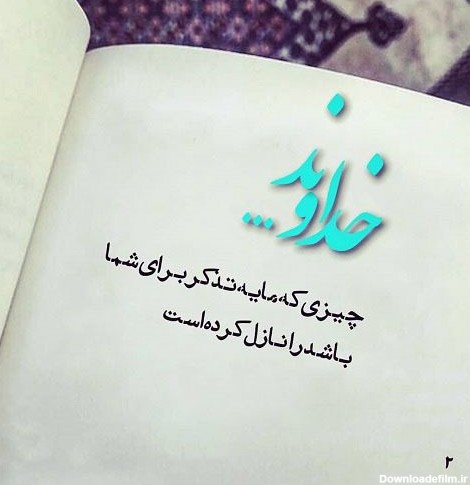 خداوند...
چیزی که مایه تذکر برای شما
باشد را نازل کرده است
۲
Downloadefilm.ir